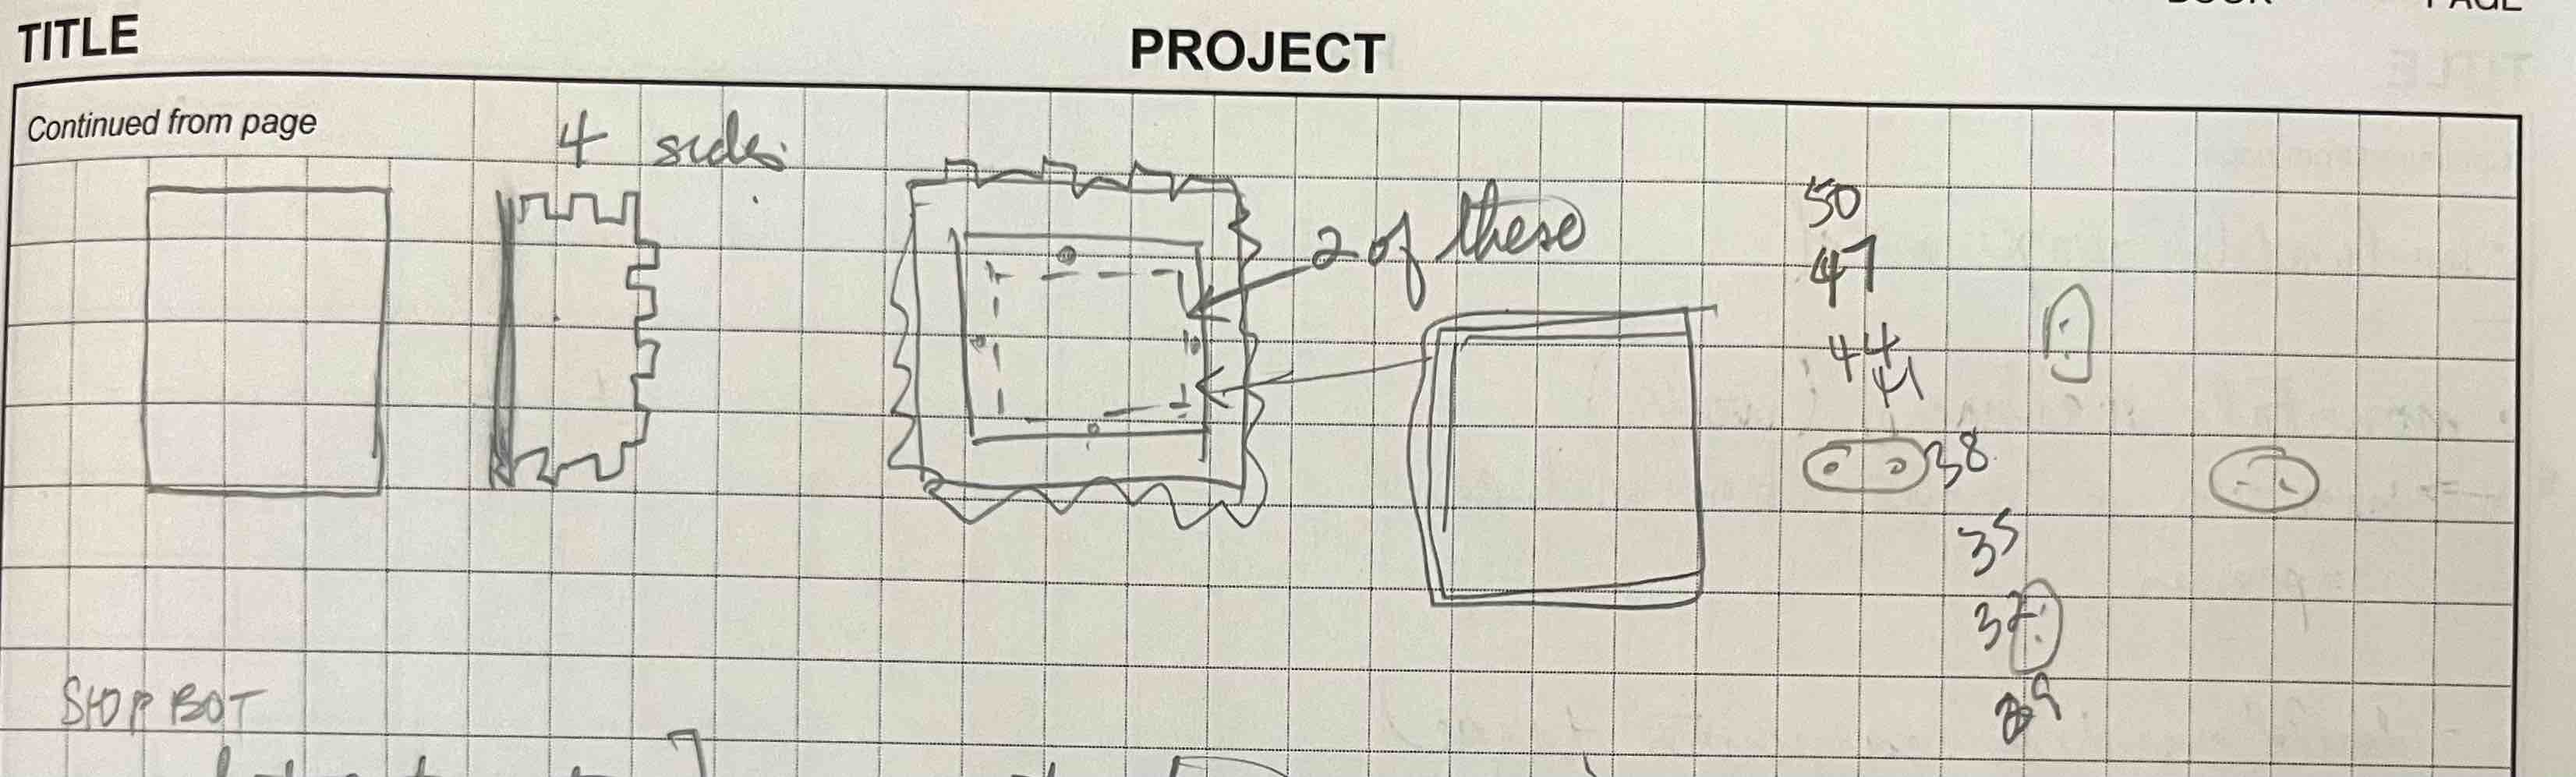 TITLE
PROJECT
Continued from page
4 sides
2 of these
50
47
44
41
38
35
32
29
SHOPBOT